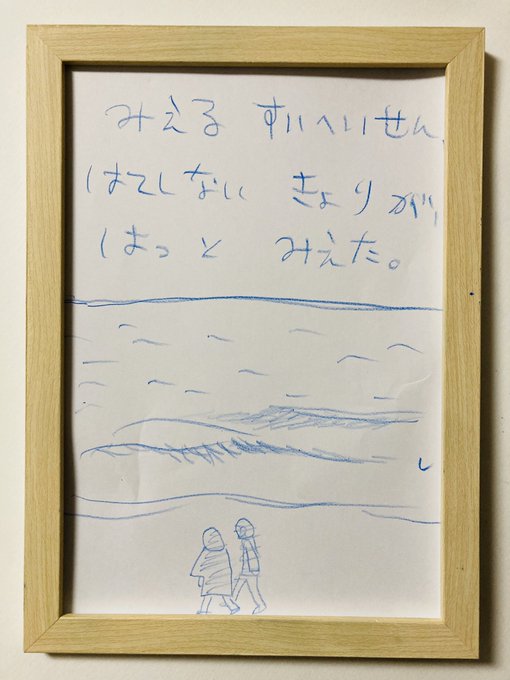 みえる すいへいせん
はてしない きょりが
はっと みえた。